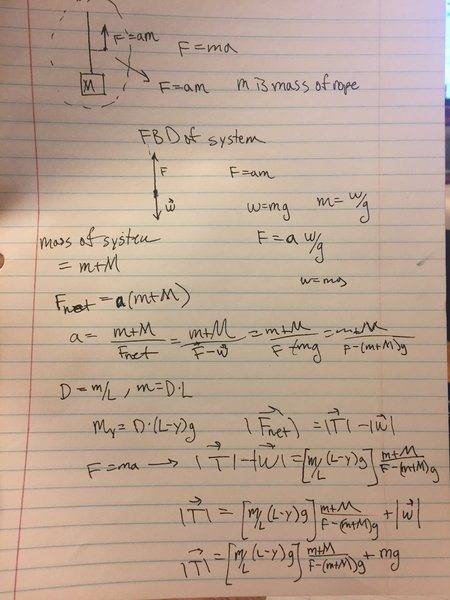 F=am
F=ma
M
F=am m is mass of rope
FBD of system
F F=am
w⃗ w=mg m=w/g
mass of system F=a w/g
=m+M w=mg
Fnet = a(m+M)
a= m+M/Fnet = m+M/F⃗-w⃗ = m+M/F-mg = m+M/F-(m+M)g
D=m/L, m=D·L
my=D·(L-y)g |F⃗net| = |T⃗|-|w⃗|
F=ma → |T⃗|-|w⃗|=[m/L(L-y)g] m+M/F-(m+M)g
|T⃗|=[m/L(L-y)g] m+M/F-(m+M)g +|w⃗|
|T⃗|=[m/L(L-y)g] m+M/F-(m+M)g + mg